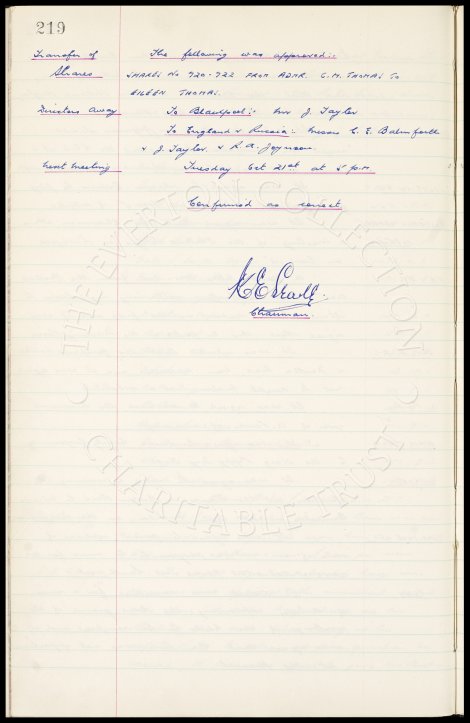 219
Transfer of The following was approved:-
Shares SHARES No 920-922 FROM ADMR. C.M. THOMAS TO
EILEEN THOMAS.
Directors Away To Blackpool:- Mr J. Taylor
To England v Russia:- Messrs C. E. Balmforth
& J. Taylor, & R. A. Joynson.
Next Meeting Tuesday Oct 21st at 5 p.m
Confirmed as correct
Chairman.
THE EVERTON COLLECTION
CHARITABLE TRUST